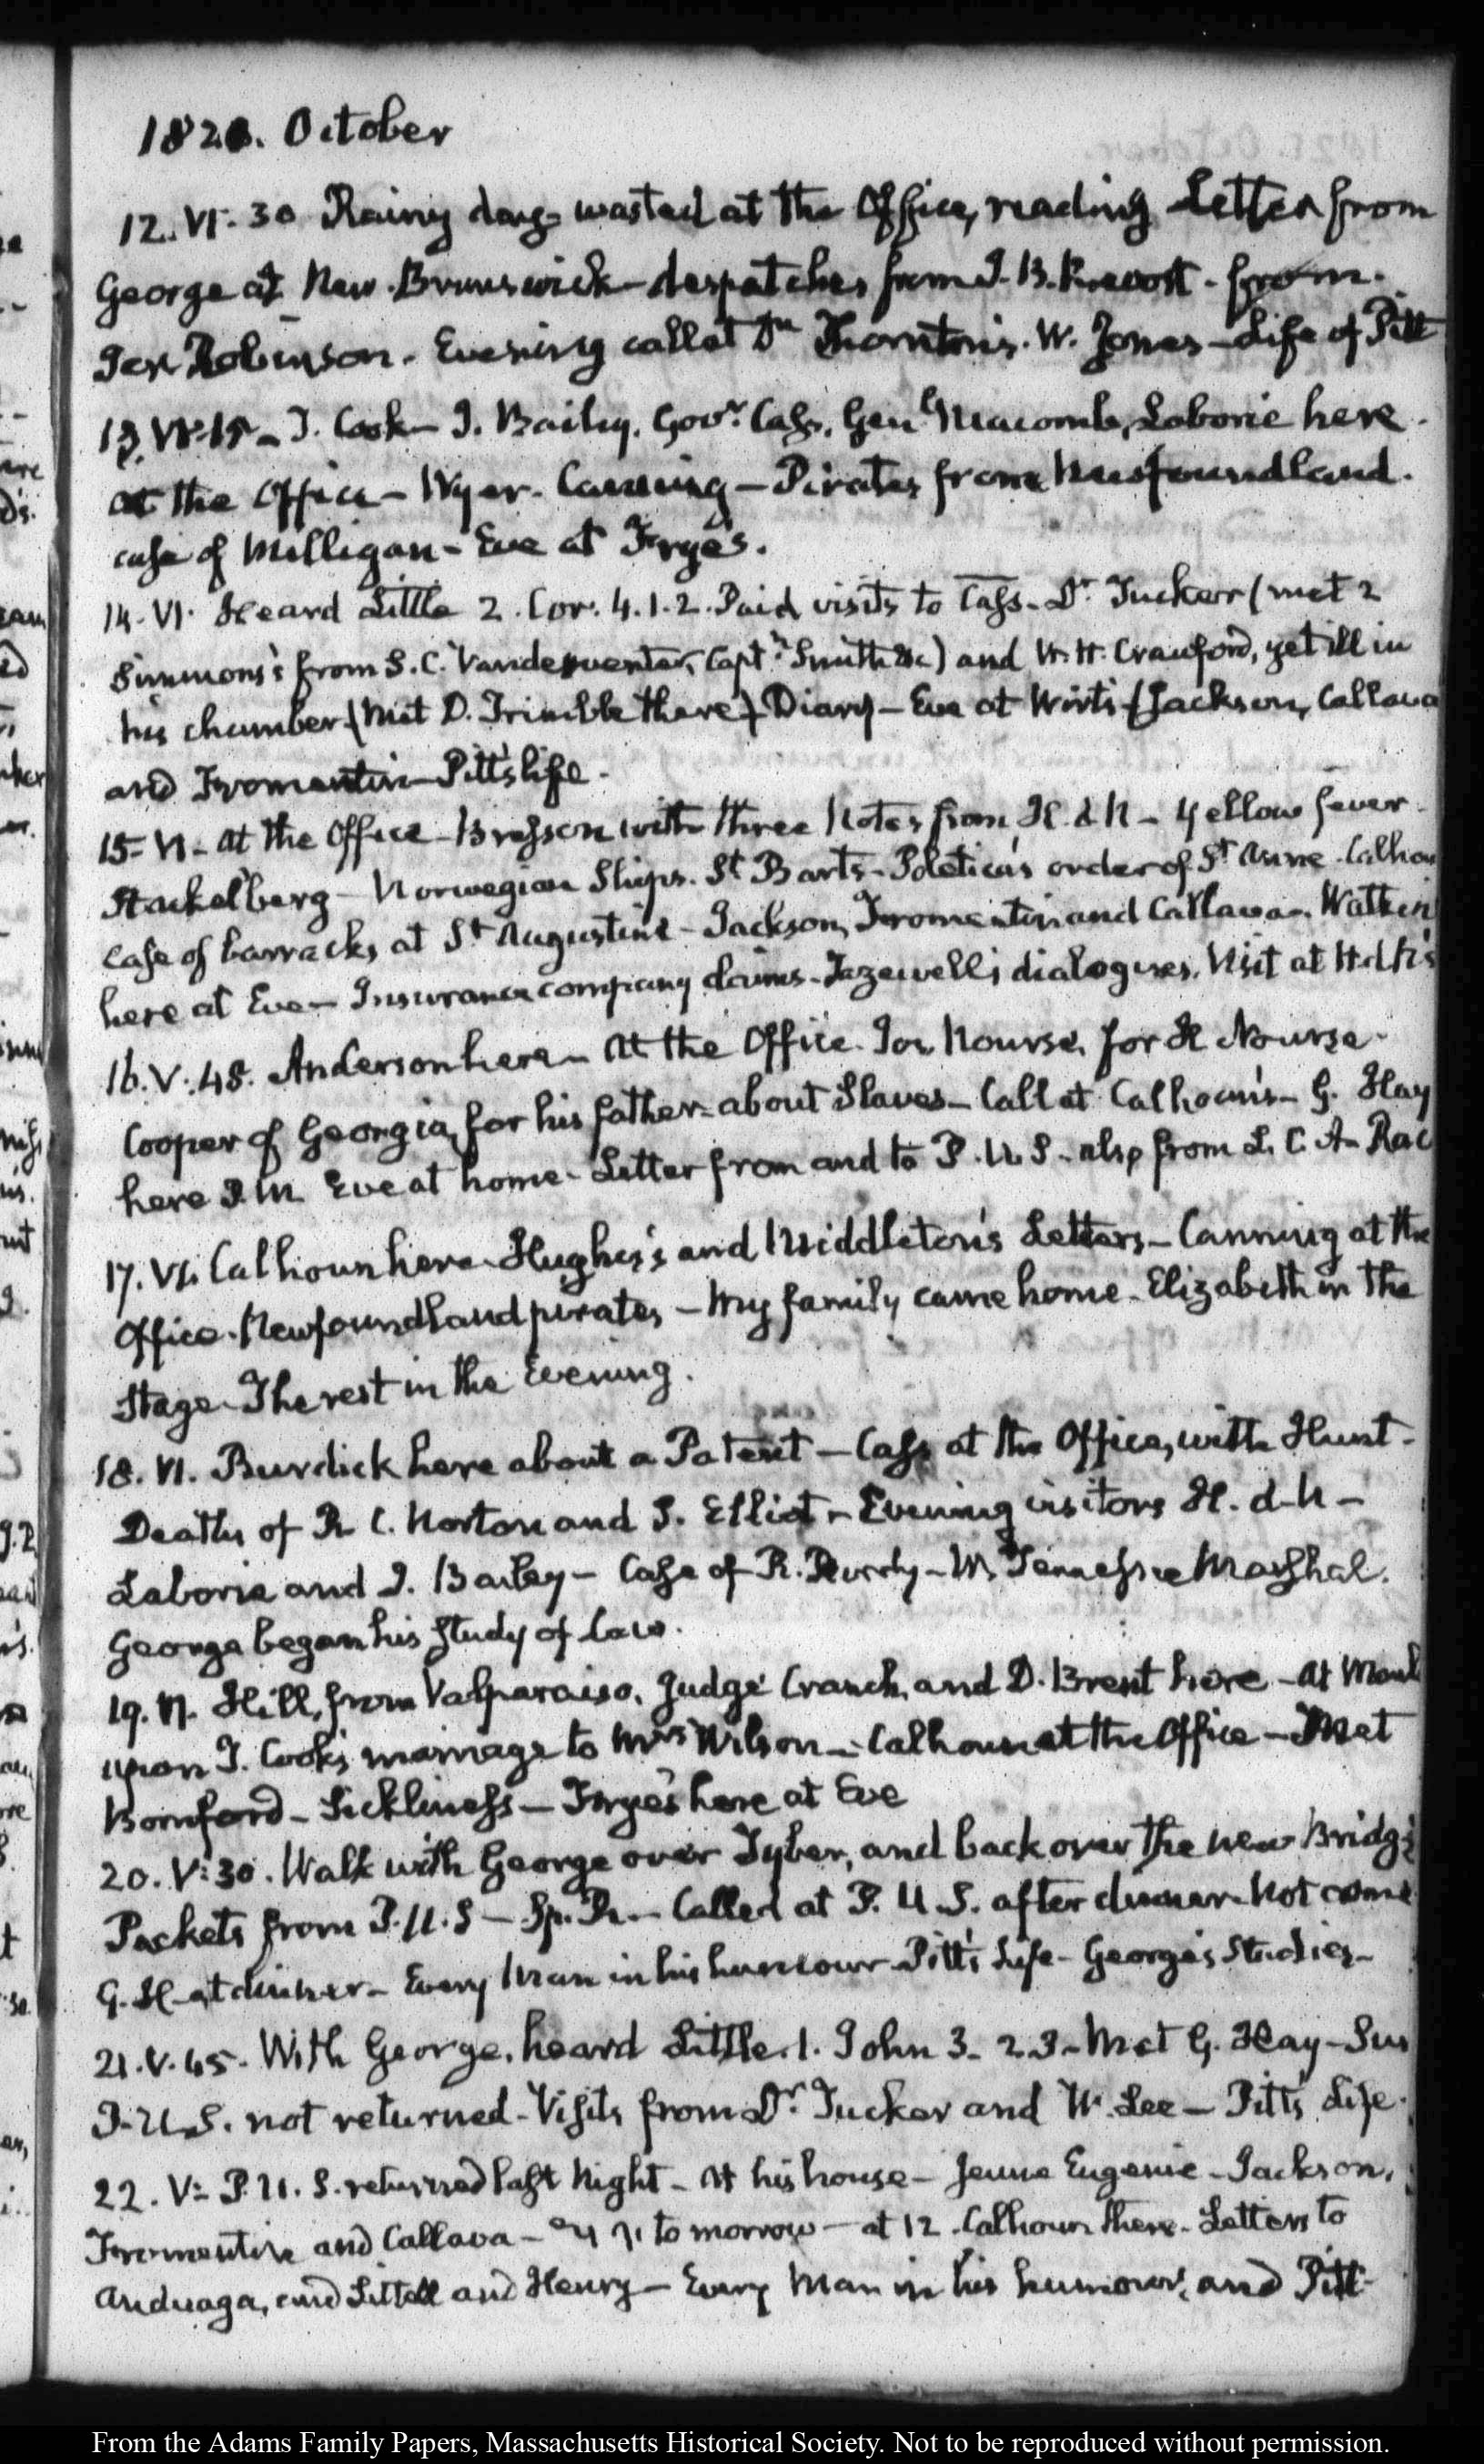 1821. October
12. VI. 30 Rainy day wasted at the Office, reading Letter from
George at New Brunswick - despatches from J. B. Prevost - from
Jer Robinson. Evening call at Dr Thornton's. W. Jones - Life of Pitt
13. VI. 15 - J. Cook - J. Bailey, Govr. Cass, Genl Macomb, Laborie here.
at the Office - Wyer. Canning - Pirates from Newfoundland.
case of Milligan - Eve at Frye's.
14. VI. Heard Little 2. Cor. 4. 1. 2. Paid visits to Cass. Dr. Tucker (met 2
Simmons's from S. C. Vandeventer, Captn. Smith &c) and W. H. Crawford, yet ill in
his chamber (met D. Trimble there) Diary - Eve at Wirt's - (Jackson, Callava
and Fromentin - Pitt's life -
15. VI - at the Office - Bresson with three Notes from H. d N - Yellow fever.
Stackelberg - Norwegian Ships. St Barts - Poletica's order of St Anne. Calhou
case of barracks at St Augustine - Jackson, Fromentin and Callava. Watkin
here at Eve - Insurance company claims - Tazewell's dialogues. Visit at H. d N's
16. V. 48. Anderson here - At the Office. Jos. Nourse, for H Nourse.
Cooper of Georgia, for his father - about Slaves - Call at Calhoun's - G. Hay
here P. M Eve at home - Letter from and to P. U. S - also from L. C. A -
17. VI. Calhoun here. Hughes's and Middleton's Letters - Canning at the
Office. Newfoundland pirates - My family came home - Elizabeth in the
Stage. The rest in the Evening.
18. VI. Burdick here about a Patent - Cass at the Office, with Hunt -
Deaths of R C. Norton and S. Elliot - Evening visitors H. d. N -
Laborie and J. Bailey - Case of R. Purdy - W. Tennessee Marshal.
George began his study of law.
19. VI. Hill, from Valparaiso, Judge Cranch, and D. Brent here - At
upon J. Cook's marriage to Mrs Wilson - Calhoun at the Office - Met
Bomford - Sickliness - Frye's here at Eve
20. V: 30. Walk with George over Tyber, and back over the new Bridge
Packets from P. U. S - Sp. Tr. - Called at P. U. S. after dinner. Not come
G. H - at dinner - Every Man in his humour - Pitt's Life - George's Studies -
21. V. 45. With George, heard Little. 1. John 3. 2 3 - Met G. Hay -
P. U. S. not returned - Visits from Dr. Tucker and W. Lee - Pitt's Life.
22. V: P. U. S. returned last Night - At his house - Jeune Eugenie - Jackson,
Fromentin and Callava - to morrow - at 12. Calhoun there. Letters to
Anduaga, and Littell and Henry - Every Man in his humour, and Pitt -
From the Adams Family Papers, Massachusetts Historical Society. Not to be reproduced without permission.